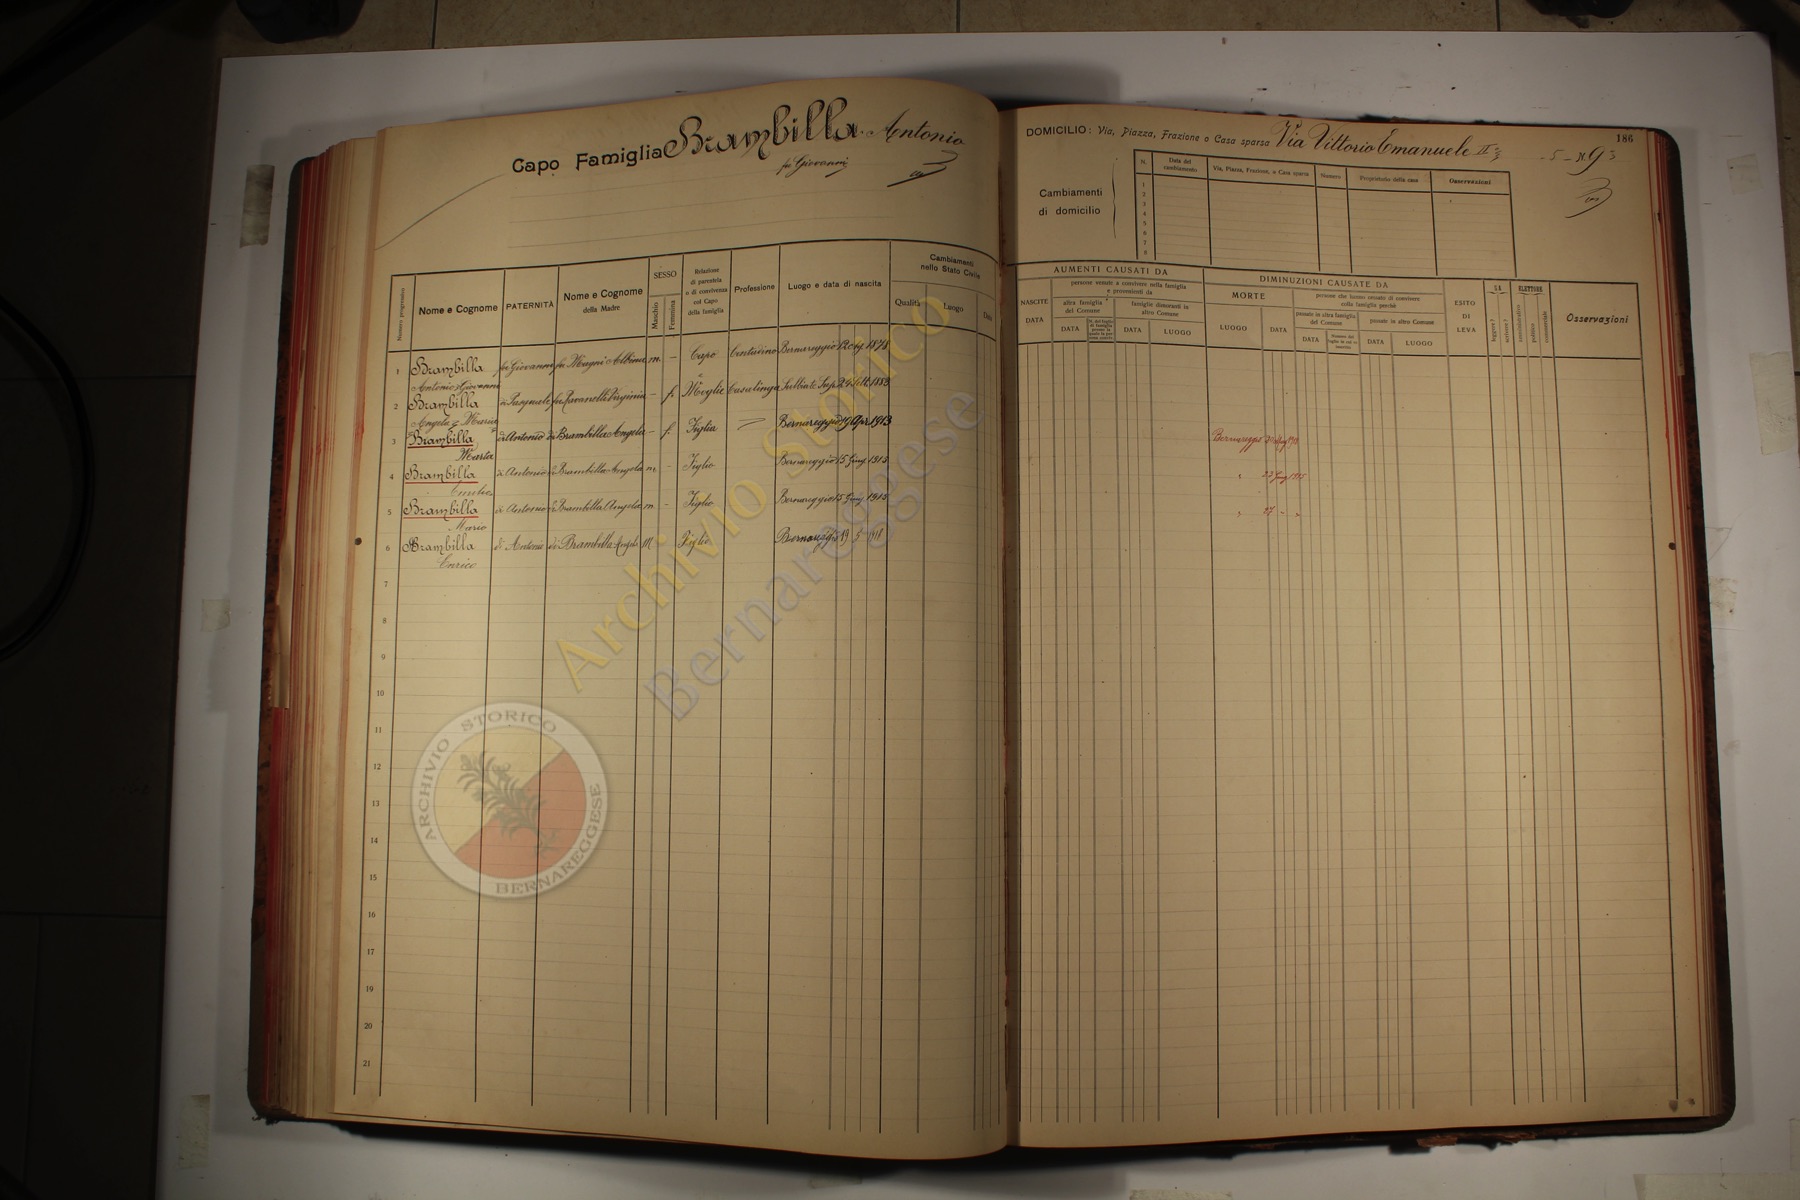 Capo Famiglia Brambilla Antonio
fu Giovanni
Numero progressivo
Nome e Cognome
PATERNITÀ
Nome e Cognome
della Madre
SESSO
Maschio
Femmina
Relazione
di parentela
o di convivenza
col Capo
della famiglia
Professione
Luogo e data di nascita
Cambiamenti
nello Stato Civile
Qualità
Luogo
Data
1 Brambilla fu Giovanni fu Magni Albina m. – Capo Contadino Bernareggio 12 1878
Antonio Giovanni
2 Brambilla di Pasquale fu Ravanelli Virginia – f. Moglie Casalinga Sulbiate Sup. 24 Sett. 1883
Angela Maria
3 Brambilla di Antonio di Brambilla Angela – f. Figlia Bernareggio 19 Apr. 1913
Maria
4 Brambilla di Antonio di Brambilla Angela m. – Figlio Bernareggio 15 Giug. 1915
5 Brambilla di Antonio di Brambilla Angela m. – Figlio Bernareggio 15 Giug. 1915
Mario
6 Brambilla di Antonio di Brambilla Angela M Figlio Bernareggio 19 5 1918
Enrico
7
8
9
10
11
12
13
14
15
16
17
18
19
20
21
186
DOMICILIO: Via, Piazza, Frazione o Casa sparsa Via Vittorio Emanuele II – 5 – N. 9
Cambiamenti
di domicilio
N.
Data del
cambiamento
Via, Piazza, Frazione, o Casa sparsa
Numero
Proprietario della casa
Osservazioni
1
2
3
4
5
6
7
8
AUMENTI CAUSATI DA
NASCITE
DATA
persone venute a convivere nella famiglia
e provenienti da
altra famiglia
del Comune
DATA
famiglie dimoranti in
altro Comune
DATA
LUOGO
DIMINUZIONI CAUSATE DA
MORTE
LUOGO
DATA
persone che hanno cessato di convivere
colla famiglia perchè
passate in altra famiglia
del Comune
DATA
passate in altro Comune
DATA
LUOGO
ESITO
DI
LEVA
SA
leggere?
scrivere?
ELETTORE
amministrativo
politico
commerciale
Osservazioni
Bernareggio
23 Giug 1915
27 – "
Archivio Storico
Bernareggese
ARCHIVIO STORICO
BERNAREGGESE